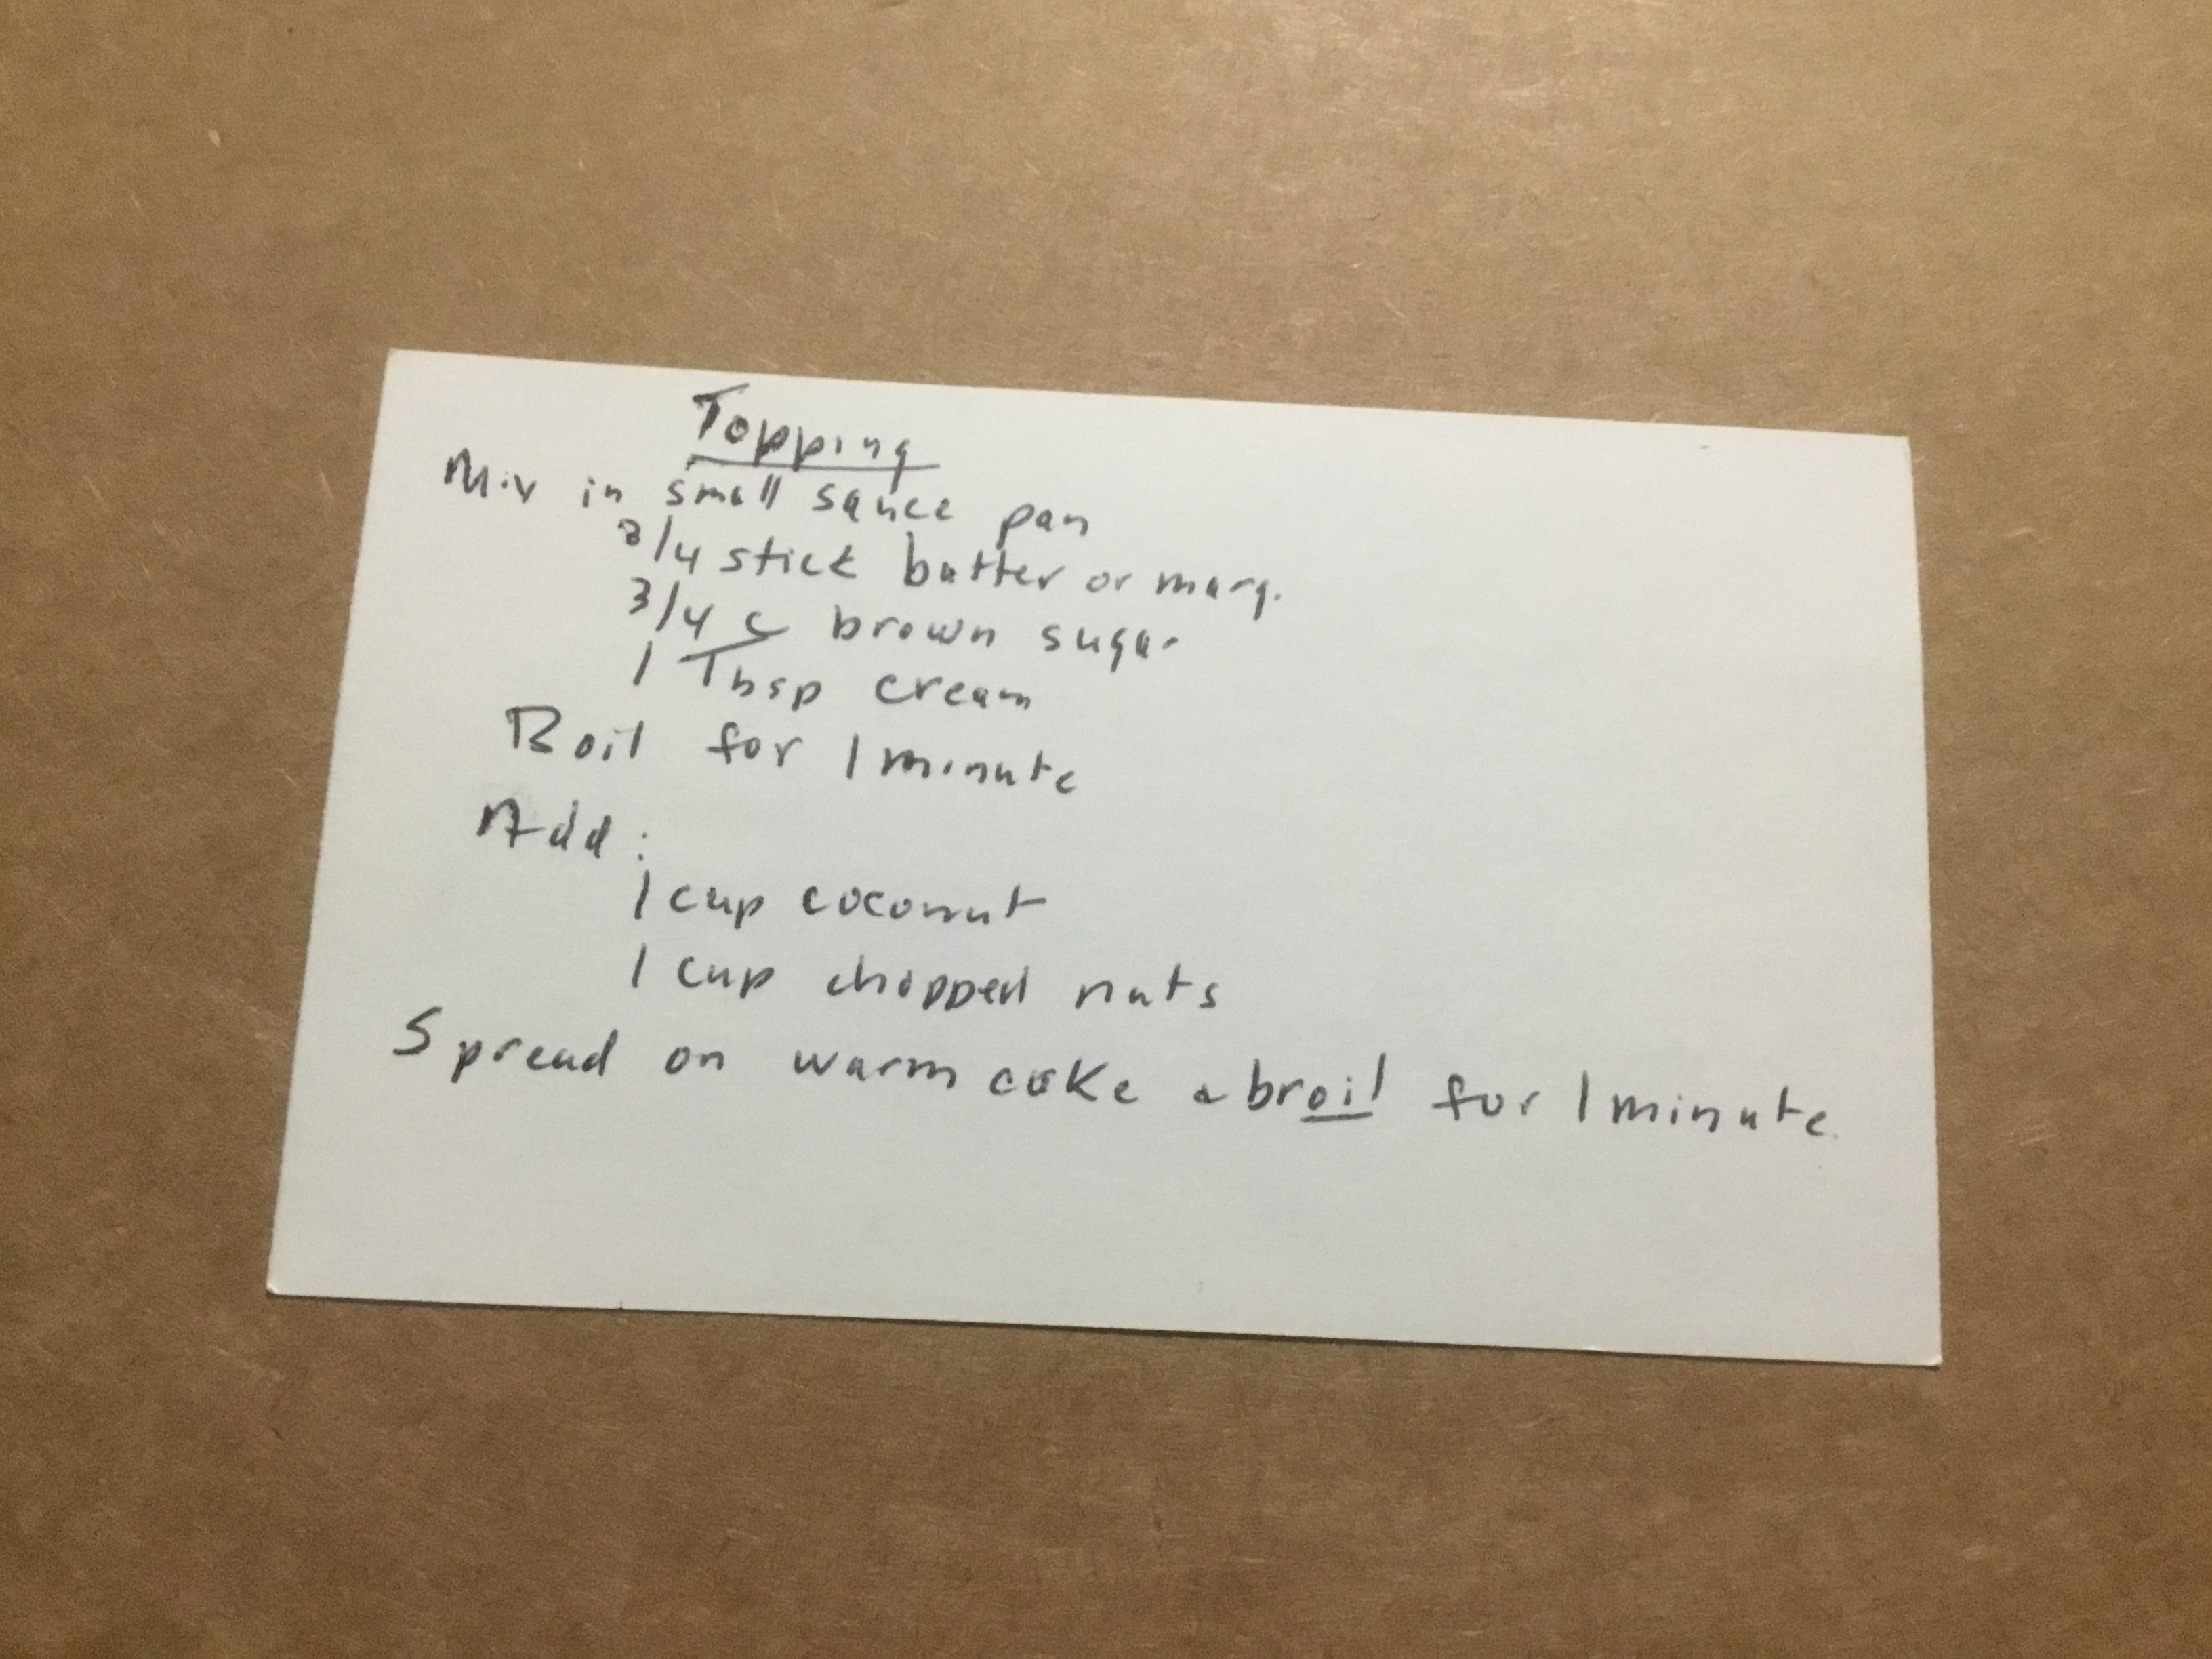 Topping
Mix in small sauce pan
3/4 stick butter or marg.
3/4 c brown sugar
1 Tbsp cream
Boil for 1 minute
Add:
1 cup coconut
1 cup chopped nuts
Spread on warm cake & broil for 1 minute.